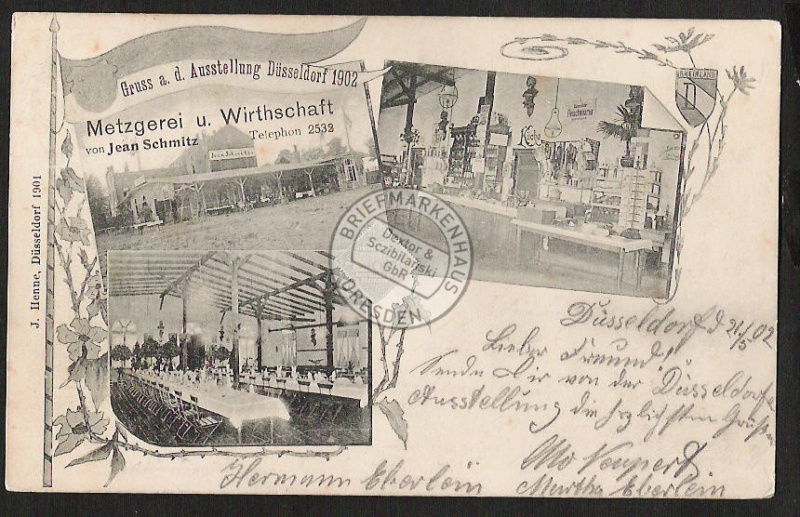 Gruss a. d. Ausstellung Düsseldorf 1902
Metzgerei u. Wirthschaft
von Jean Schmitz Telephon 2532
Jean Schmitz
RHEINLAND
Küche
J. Henne, Düsseldorf 1901
BRIEFMARKENHAUS
Dextor &
Sczibilanski
GbR
DRESDEN
Düsseldorf d 21/5 02
Lieber Freund!
Sende Dir von der Düsseldorfer
Ausstellung die hzlichsten Grüße
Otto Neupert
Hermann Eberlein
Martha Eberlein